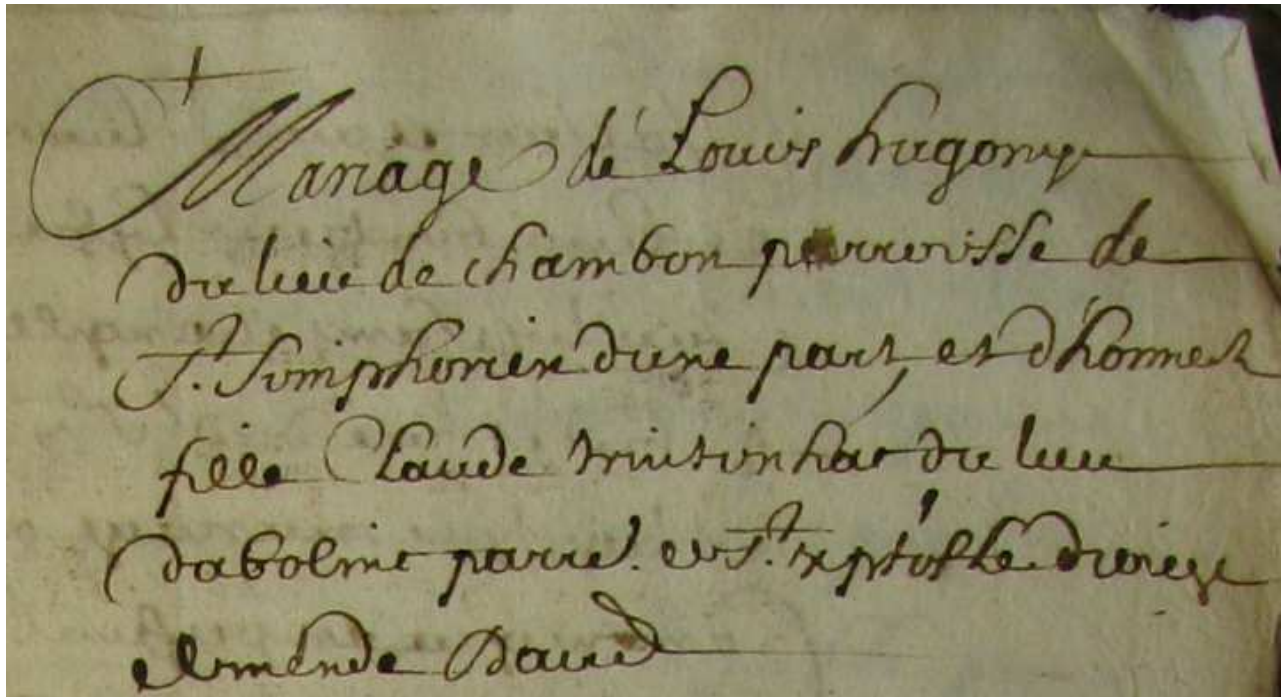 Mariage de Louis hugony
du lieu de chambon parroisse de
St. Simphorien dune part, et d'honneste
fille Claude trintinhac du lieu
daboline parre. et St. xpstofle diocese
de mende Dauud